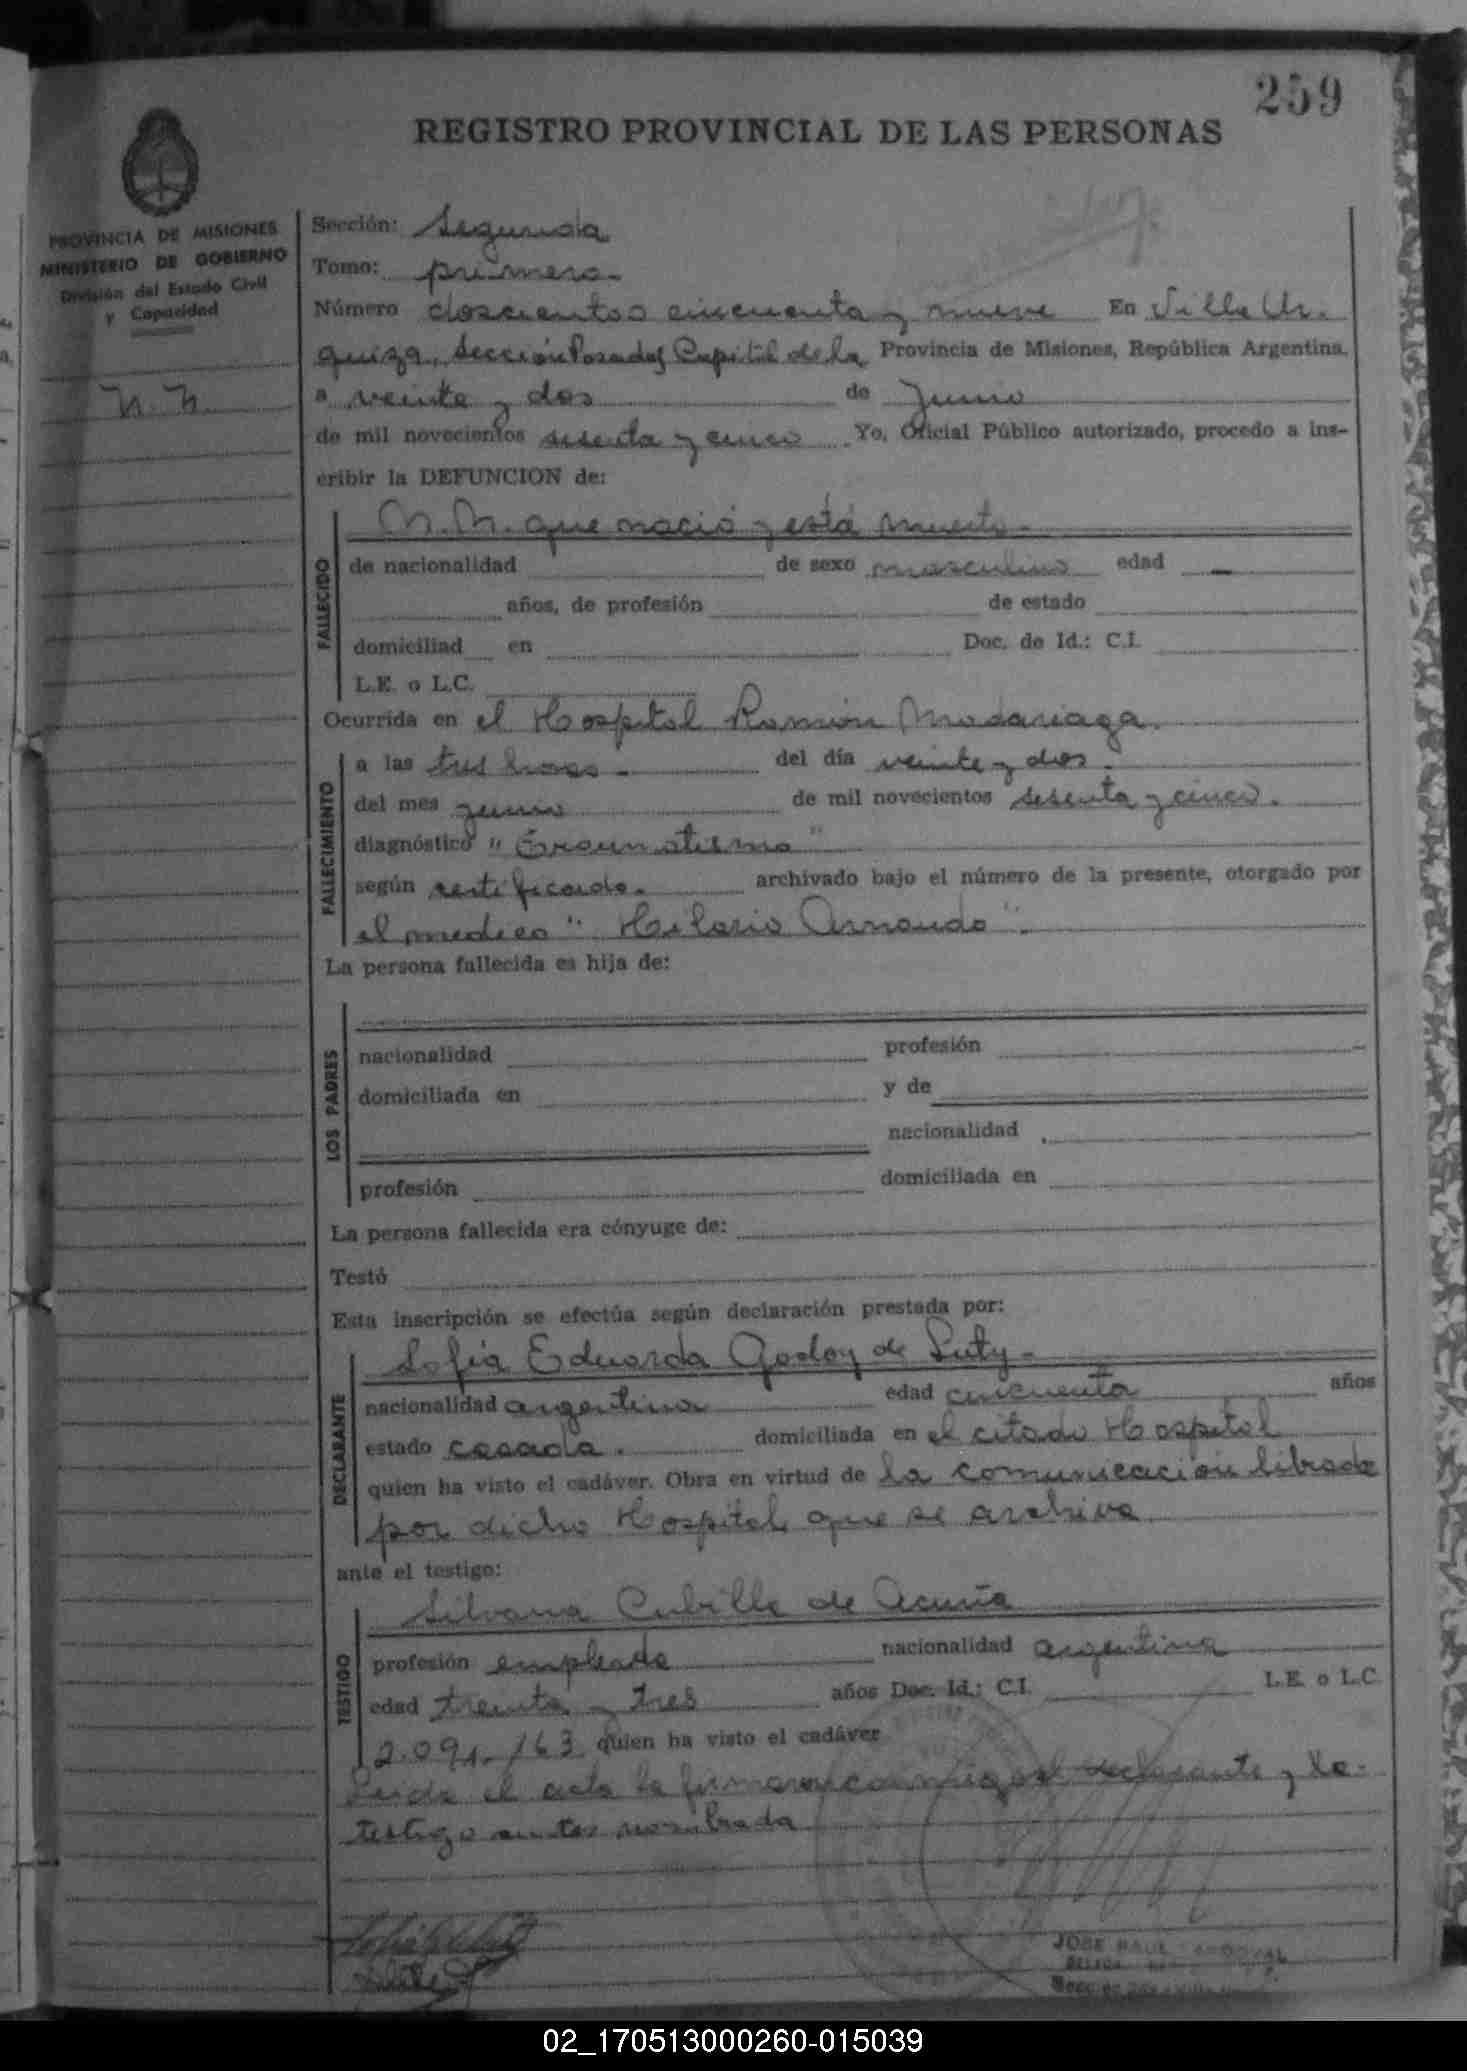 259
REGISTRO PROVINCIAL DE LAS PERSONAS
PROVINCIA DE MISIONES
MINISTERIO DE GOBIERNO
División del Estado Civil
y Capacidad
N. N.
Sección: Segunda
Tomo: primero.
Número doscientos cincuenta y nueve En Villa Ur-
quiza, Sección Posadas Capital de la Provincia de Misiones, República Argentina,
a veinte y dos de Junio
de mil novecientos sesenta y cinco Yo, Oficial Público autorizado, procedo a ins-
cribir la DEFUNCION de:
N. N. que nació y está muerto.
FALLECIDO
de nacionalidad de sexo masculino edad —
años, de profesión de estado
domiciliad en Doc. de Id.: C.I.
L.E. o L.C.
Ocurrida en el Hospital Ramón Madariaga.
FALLECIMIENTO
a las tres horas. del día veinte y dos.
del mes junio de mil novecientos sesenta y cinco.
diagnóstico "Traumatismo"
según certificado. archivado bajo el número de la presente, otorgado por
el medico "Hilario Arnaudo".
La persona fallecida es hija de:
LOS PADRES
nacionalidad profesión
domiciliada en y de
nacionalidad
profesión domiciliada en
La persona fallecida era cónyuge de:
Testó
Esta inscripción se efectúa según declaración prestada por:
Sofia Eduarda Godoy de Luty.
DECLARANTE
nacionalidad argentina edad cincuenta años
estado casada. domiciliada en el citado Hospital
quien ha visto el cadáver. Obra en virtud de la comunicación librada
por dicho Hospital, que se archiva.
ante el testigo:
Silvana Cubilla de Acuña
TESTIGO
profesión empleada nacionalidad argentina
edad treinta y tres años Doc. Id.: C.I. L.E. o L.C.
2.091.163 quien ha visto el cadáver
Leida el acta la firman conmigo el declarante y la
testigo antes nombrada
JOSE RAUL SANDOVAL
02_170513000260-015039